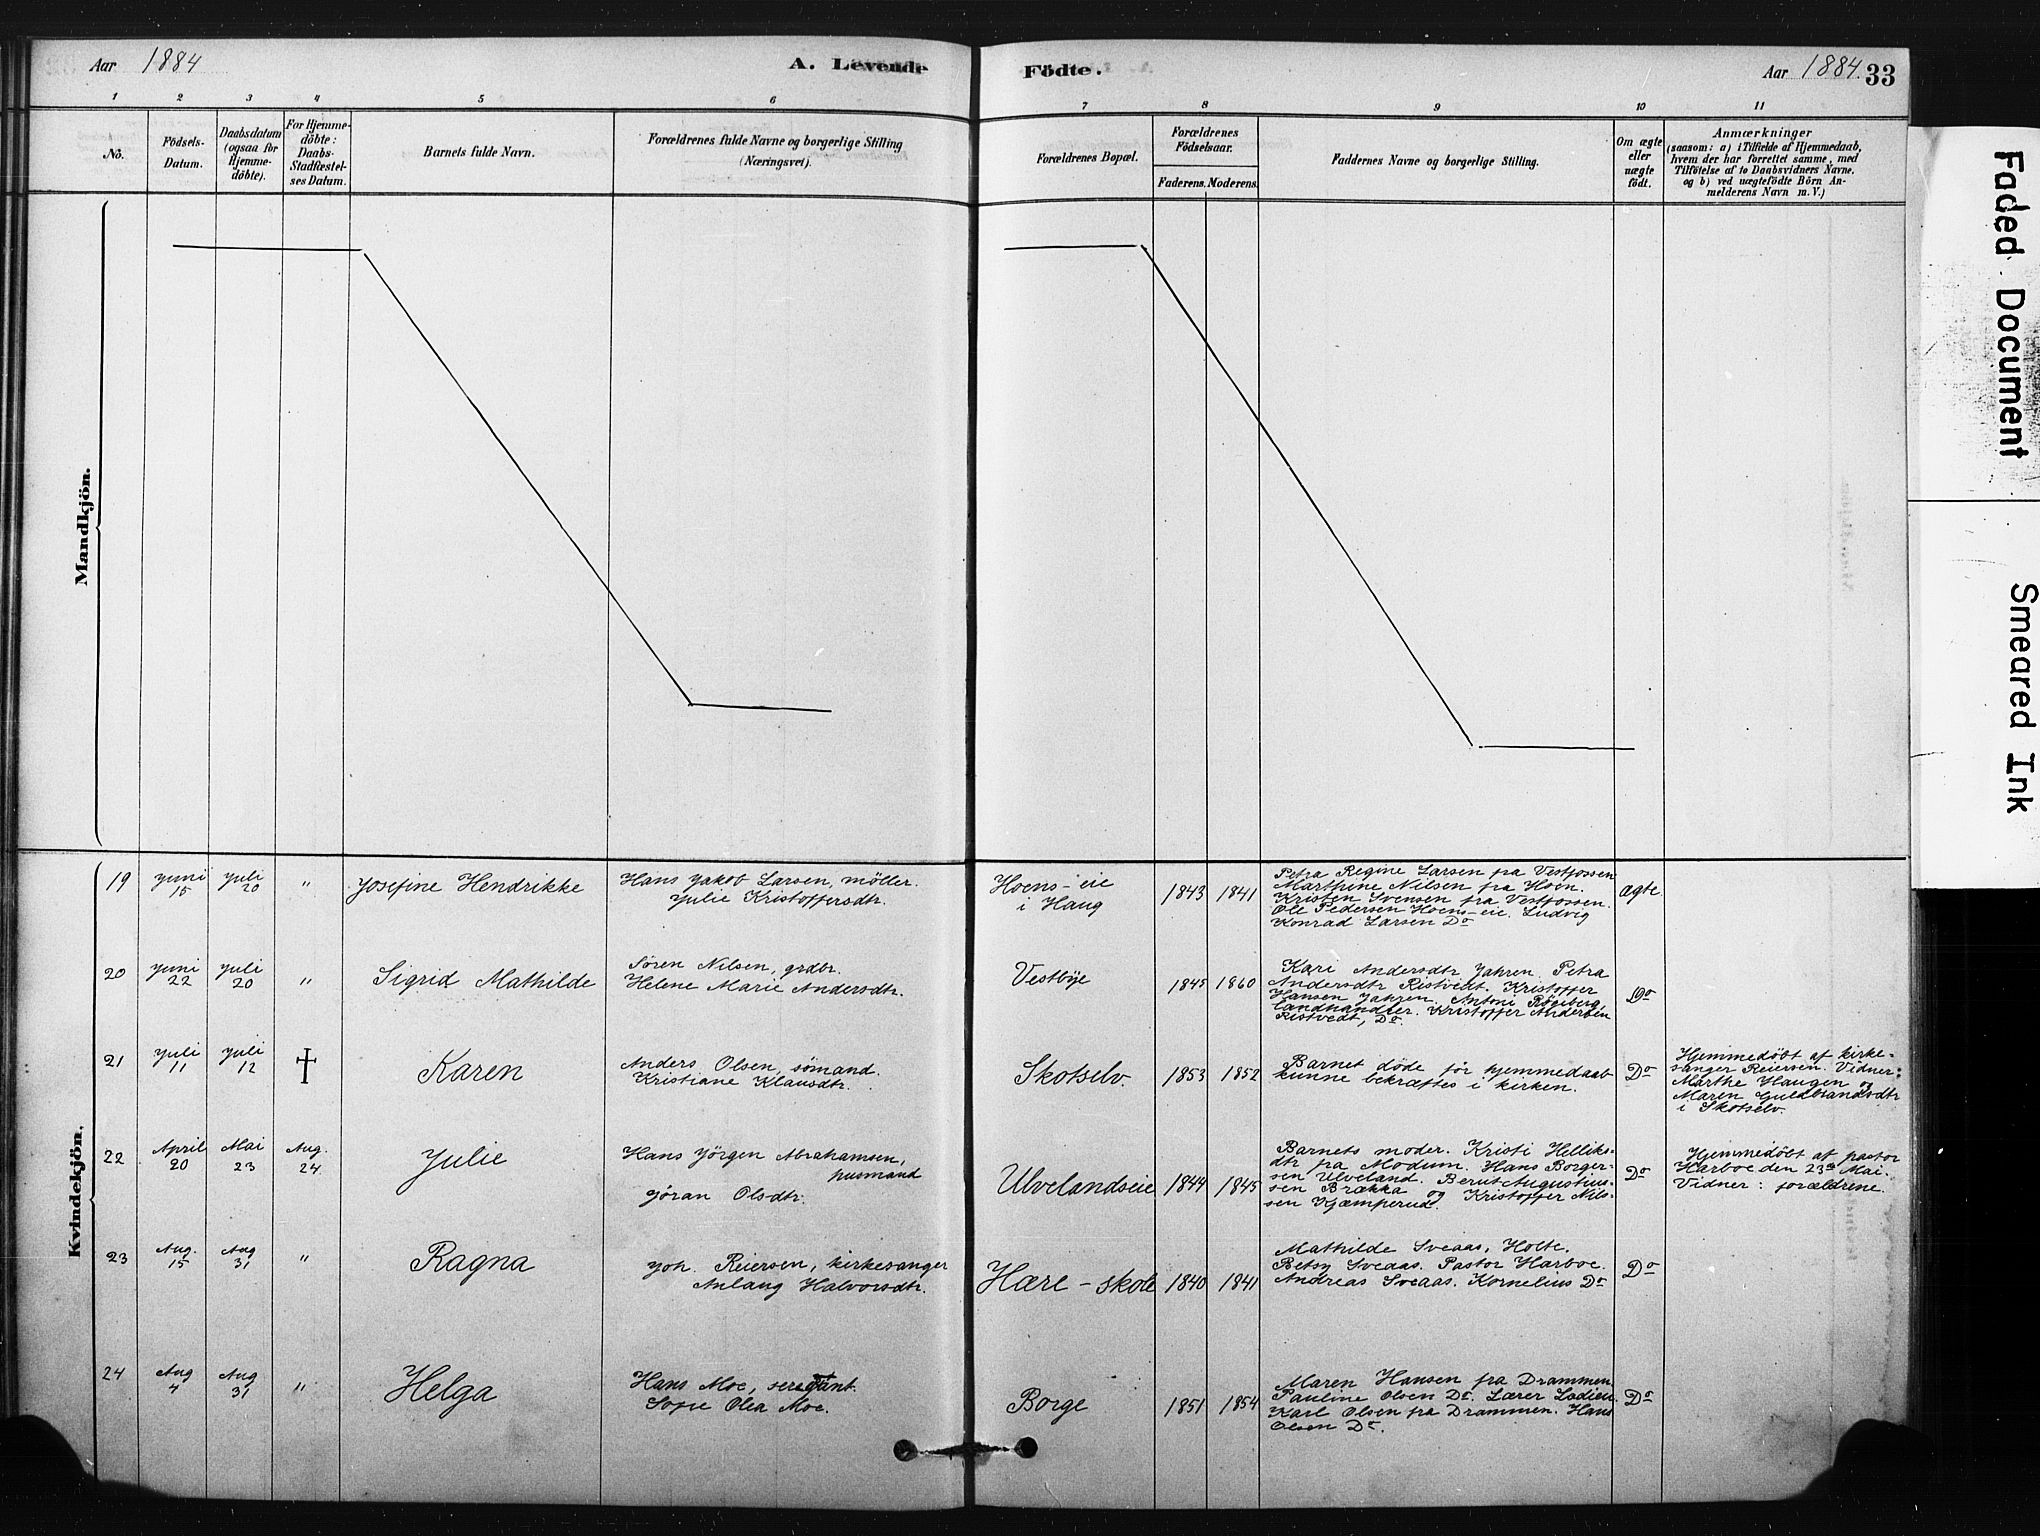 Aar 1884
A. Levende
Födte.
Aar 1884.
33
1 2 3 4 5 6 7 8 9 10 11
No.
Födsels-
Datum.
Daabsdatum
(ogsaa for
Hjemme-
döbte).
For Hjemme-
döbte:
Daabs-
Stadfæstel-
ses Datum.
Barnets fulde Navn.
Forældrenes fulde Navne og borgerlige Stilling
(Næringsvei).
Forældrenes Bopæl.
Forældrenes
Födselsaar.
Faderens. Moderens.
Faddernes Navne og borgerlige Stilling.
Om ægte
eller
uægte
födt.
Anmærkninger
(saasom: a) i Tilfælde af Hjemmedaab,
hvem der har forrettet samme, med
Tilföielse af to Daabsvidners Navne.
og b) ved uægtefödte Börn An-
melderens Navn m. V.)
Mandkjön.
Kvindekjön.
19
Juni
15
Juli
20
"
Josefine Hendrikke
Hans Jakob Larsen, möller.
Julie Kristoffersdtr.
Hoens-eie
i Haug
1843 1841
Petra Regine Larsen fra Vestfossen
Marthine Nilsen fra Hoen.
Kristen Svensen fra Vestfossen.
Ole Pedersen Hoens-eie. Ludvig
Konrad Larsen Do
ægte
20
Juni
22
Juli
20
"
Sigrid Mathilde
Søren Nilsen, grdbr.
Helene Marie Andersdtr.
Vestbye
1845 1860
Kari Andersdtr Jahren. Petra
Andersdtr Ristvedt. Kristoffer
Hansen Jahren. Antoni
landhandler. Kristoffer Andersen
Ristvedt, Do.
Do
21
Juli
11
Juli
12
†
Karen
Anders Olsen, sömand.
Kristiane Klausdtr.
Skotselv.
1853 1852
Barnet døde før hjemmedaab
kunne bekræftes i kirken.
Do
Hjemmedöbt af kirke-
sanger Reiersen. Vidner:
Marthe Haugen og
Maren Guldbrandsdtr
i Skotselv.
22
April
20
Mai
23
Aug.
24
Julie
Hans Jörgen Abrahamsen,
husmand
Jöran Olsdtr.
Ulvelandseie
1844 1845
Barnets moder. Kristi Helliks-
dtr fra Modum. Hans Borger-
sen Ulveland. Bernt Augustus-
sen Brækka og Kristoffer Nils-
sen Kjæmperud.
Do
Hjemmedöbt af pastor
Harboe den 23de Mai.
Vidner: forældrene.
23
Aug.
15
Aug
31
"
Ragna
Joh. Reiersen, kirkesanger
Anlaug Halvorsdtr.
Hære-skole
1840 1841
Mathilde Sveaas, Holte.
Betsy Sveaas. Pastor Harboe.
Andreas Sveaas. Kornelius Do
Do
24
Aug
4
Aug
31
"
Helga
Hans Moe, sergant.
Sofie Olea Moe.
Borge
1851 1854
Maren Hansen fra Drammen.
Pauline Olsen Do. Lærer
Karl Olsen fra Drammen. Hans
Olsen Do.
Do
Faded Document
Smeared Ink